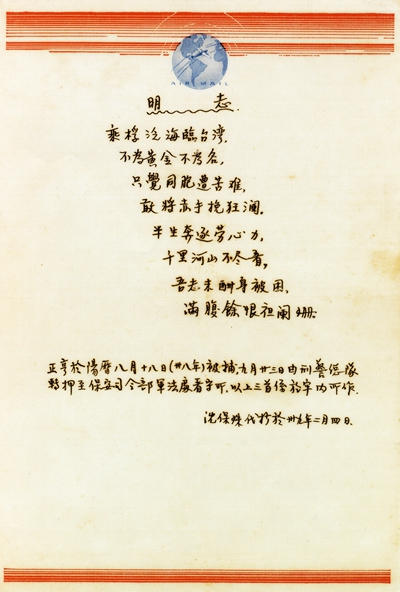 AIR MAIL
明 志
乘桴泛海臨台灣,
不為黃金不為名,
只覺同胞遭苦难,
敢將赤手挽狂瀾。
半生奔逐劳心力,
十里河山不忍看,
吾志未酬身被困,
滿腹餘恨袒闌珊.
正亨於陽曆八月十八日(卅八年)被捕,九月廿三日由刑警總隊
轉押至保安司令部軍法處看守所.以上三首係於牢內所作.
沈保珠代抄於卅九年二月四日.